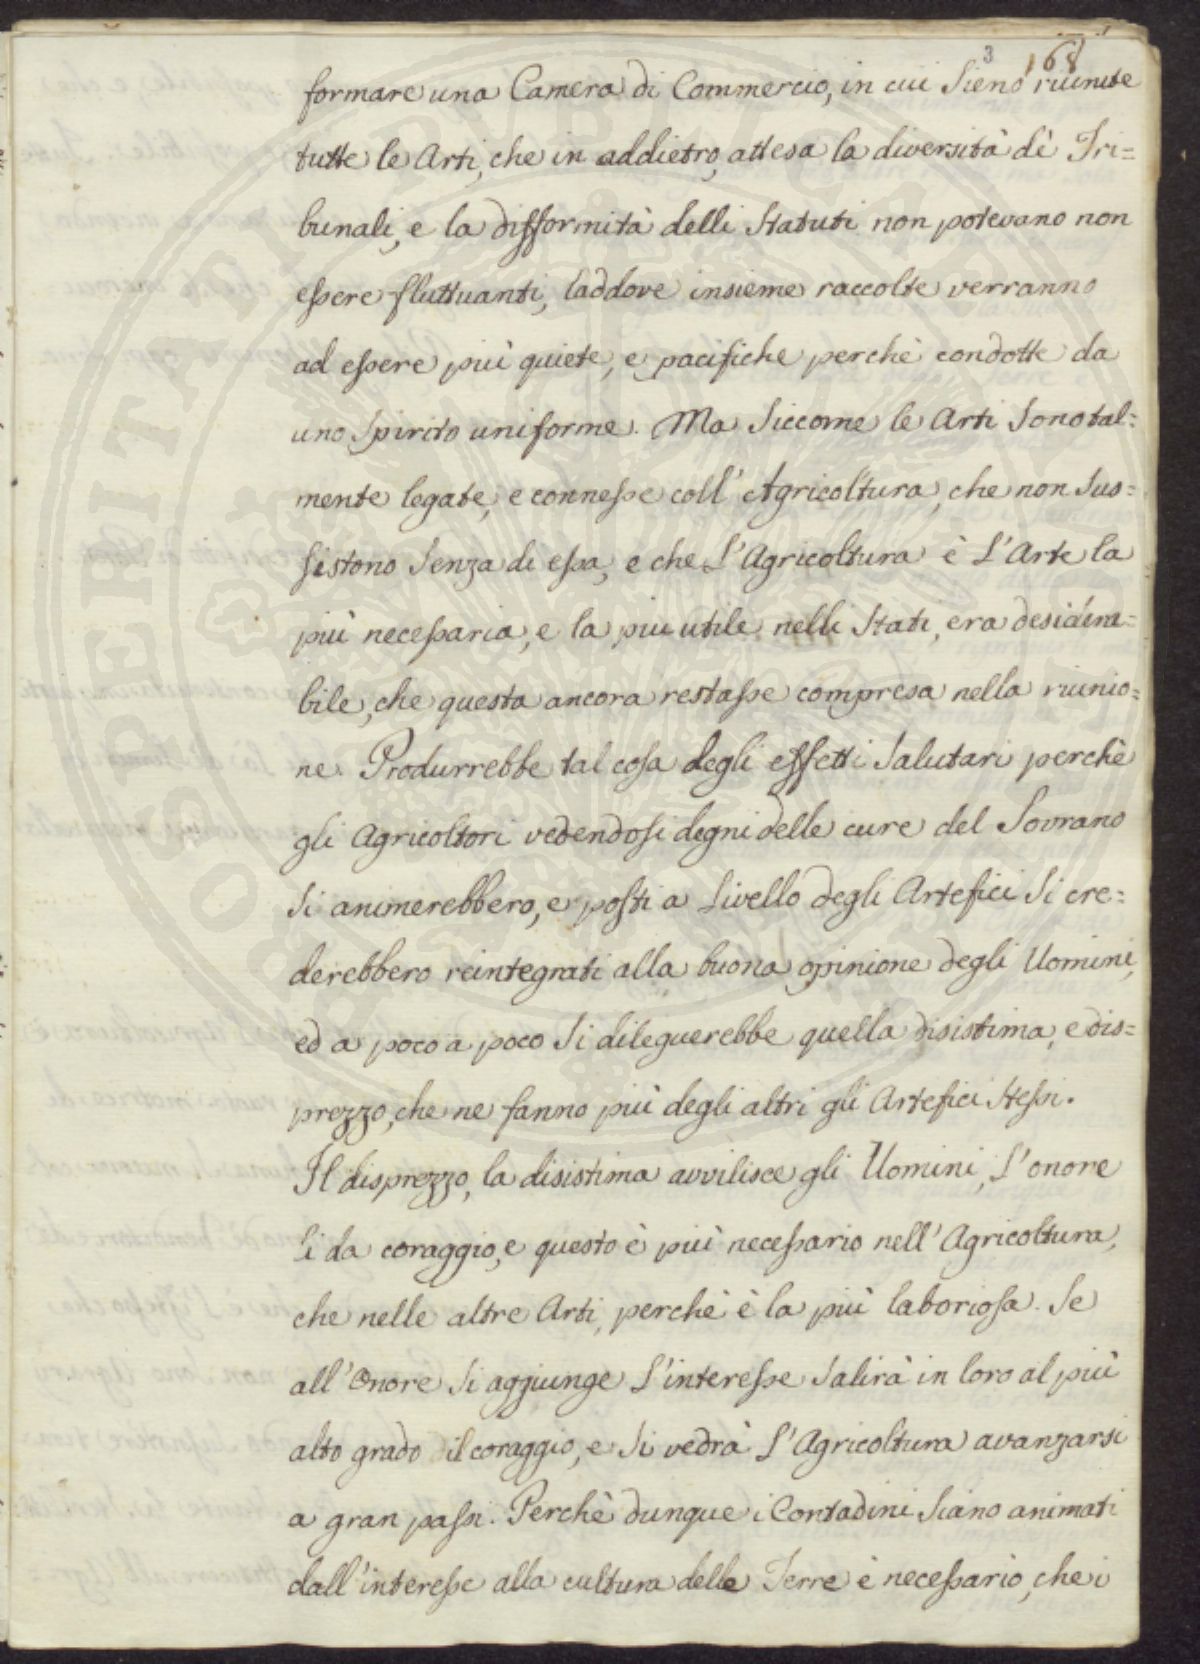 3 168
formare una Camera di Commercio, in cui sieno riunite
tutte le Arti, che in addietro, attesa la diversità dè Tri=
bunali, e la difformità delli Statuti non potevano non
essere fluttuanti, laddove insieme raccolte verranno
ad essere più quiete, e pacifiche perchè condotte da
uno spirito uniforme. Ma siccome le Arti sono tal=
mente legate, e connesse coll' Agricoltura, che non sus=
sistono senza di essa, e che l'Agricoltura è l'Arte la
più necessaria, e la piu utile nelli Stati, era desidera=
bile, che questa ancora restasse compresa nella riunio=
ne. Produrrebbe tal cosa degli effetti salutari perchè
gli Agricoltori vedendosi degni delle cure del Sovrano
si animerebbero, e posti a livello degli Artefici si cre=
derebbero reintegrati alla buona opinione degli Uomini,
ed a poco a poco si dileguerebbe quella disistima, e dis=
prezzo, che ne fanno più degli altri gli Artefici stessi.
Il disprezzo, la disistima avvilisce gli Uomini, l'onore
li da coraggio, e questo è più necessario nell'Agricoltura,
che nelle altre Arti, perchè è la più laboriosa. Se
all'Onore si aggiunge l'interesse salirà in loro al più
alto grado il coraggio, e si vedrà l'Agricoltura avanzarsi
a gran passi. Perchè dunque i Contadini siano animati
dall'interesse alla cultura delle Terre è necessario, che i
PROSPERITATI PUBLICAE